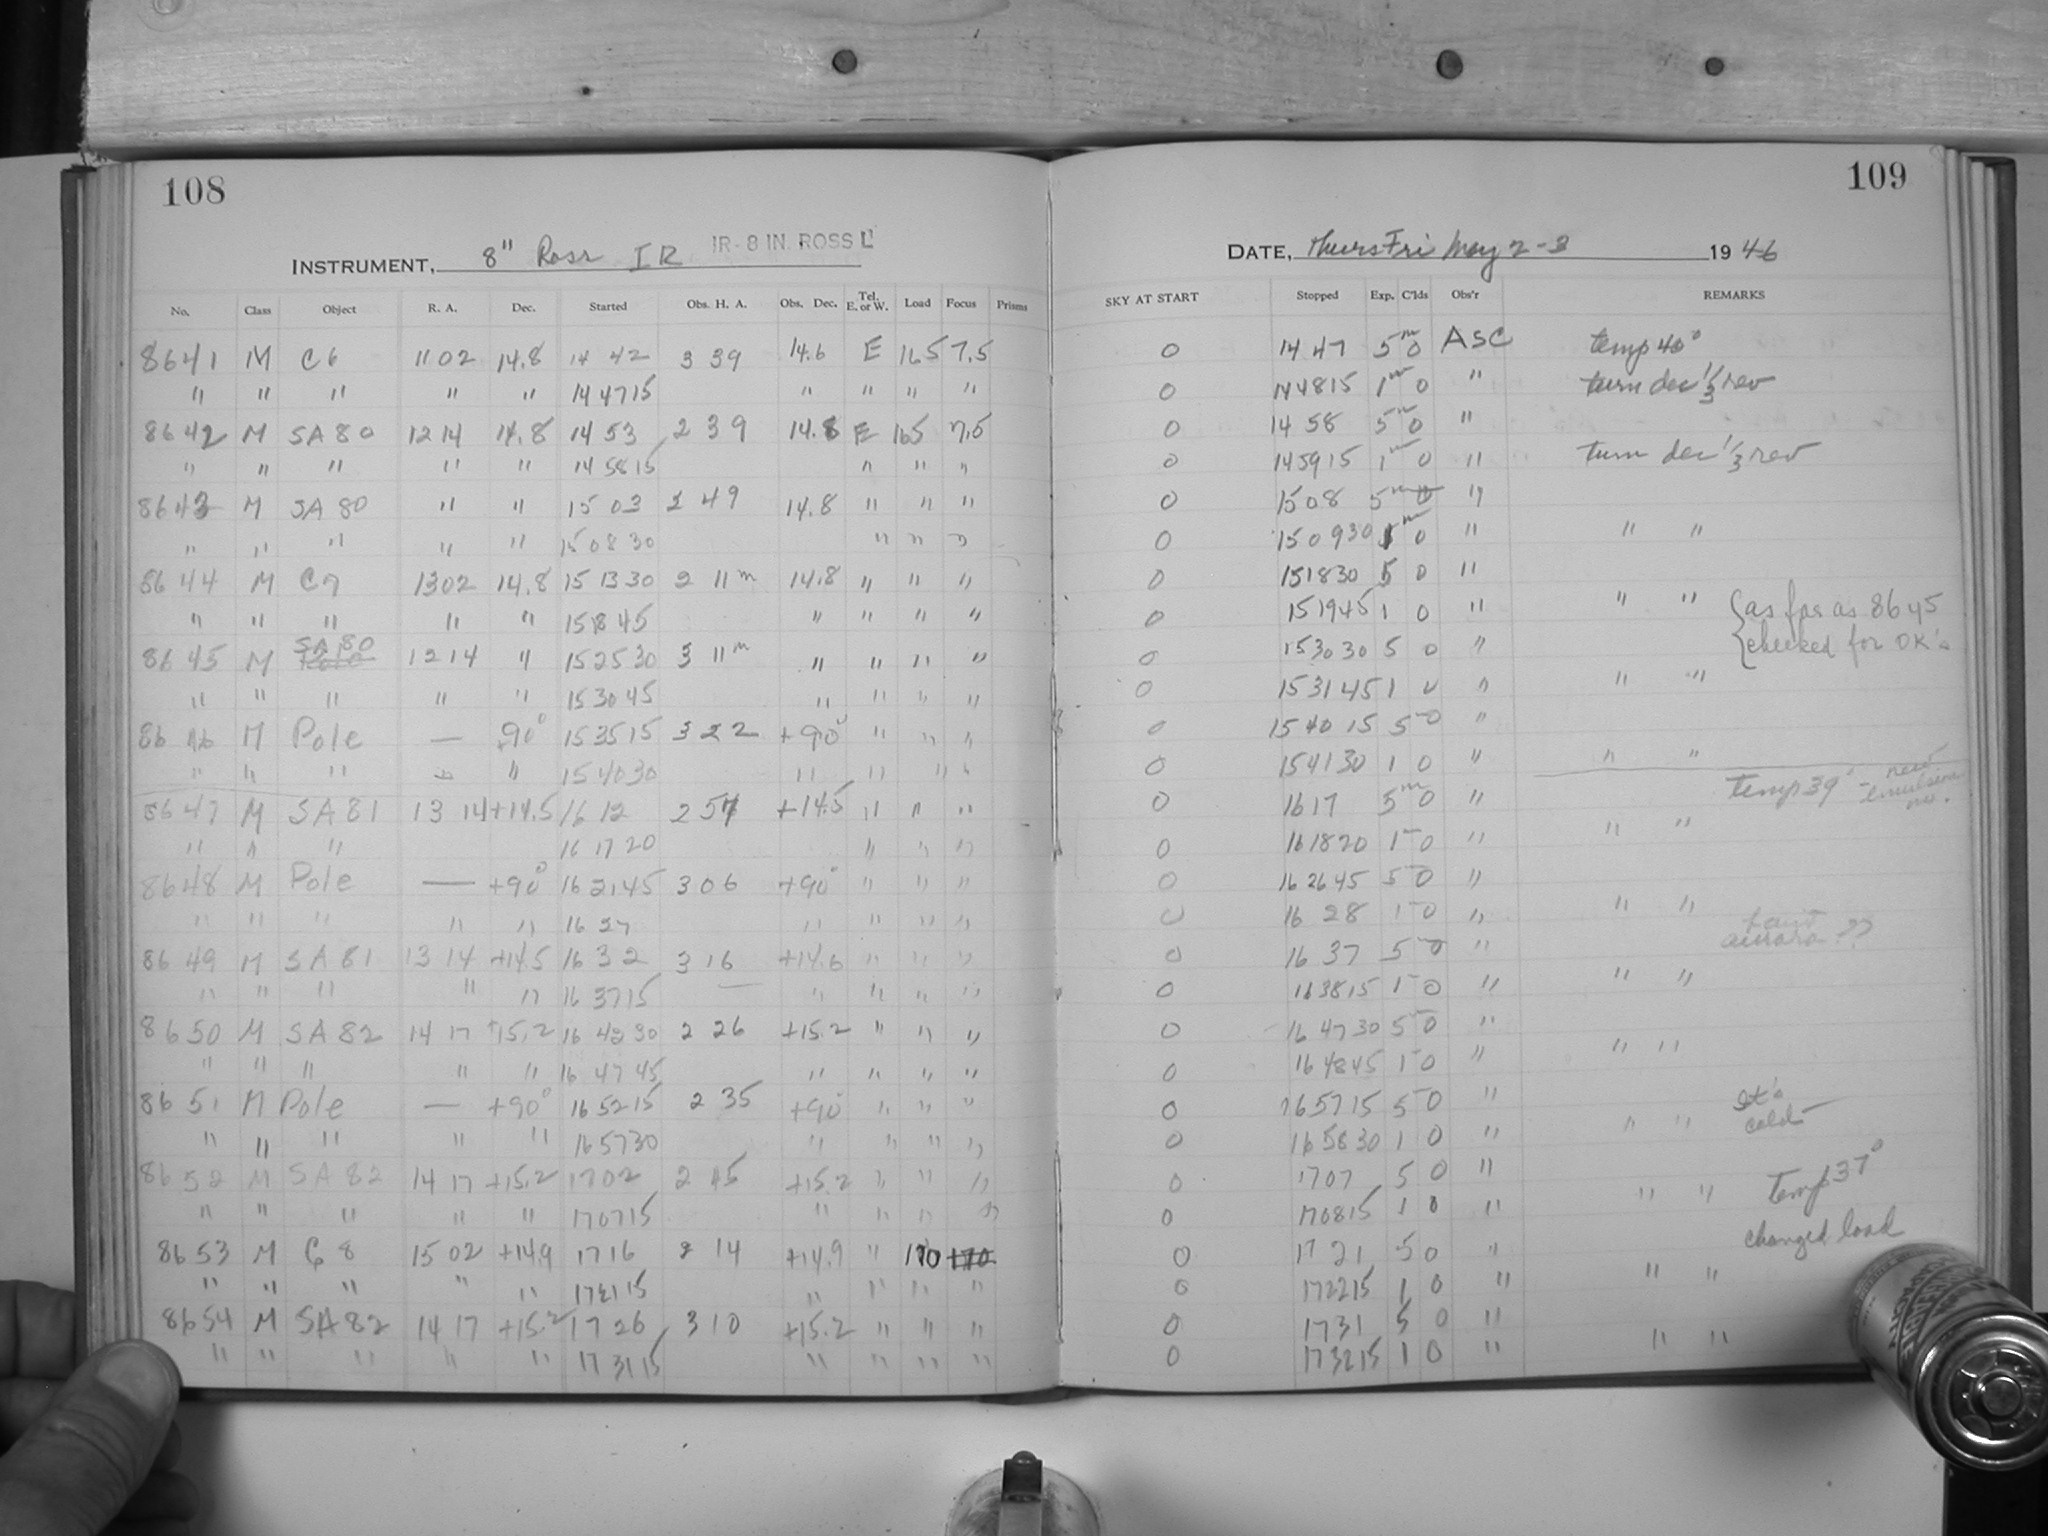 108
INSTRUMENT, 8" Ross IR IR-8 IN. ROSS L
No. Class Object R. A. Dec. Started Obs. H. A. Obs. Dec. Tel. E. or W. Load Focus Prisms
8641 M C6 11 02 14.8 14 42 3 39 14.6 E 165 7.5
" " " " " 14 47 15 " " " "
8642 M SA 80 12 14 14.8 14 53 2 39 14.8 E 165 7.5
" " " " " 14 58 15 " " "
8643 M SA 80 " " 15 03 2 49 14.8 " " "
" " " " " 15 08 30 " " "
8644 M C7 13 02 14.8 15 13 30 2 11m 14.8 " " "
" " " " " 15 18 45 " " " "
8645 M SA 80 12 14 " 15 25 30 3 11m " " " "
" " " " " 15 30 45 " " " "
8646 M Pole — +90° 15 35 15 3 22 +90° " " "
" " " " 15 40 30 " " " "
8647 M SA 81 13 14 +14.5 16 12 2 57 +14.5 " " "
" " " 16 17 20 " " "
8648 M Pole — +90° 16 21 45 3 06 +90° " " "
" " " " " 16 27 " " " "
8649 M SA 81 13 14 +14.5 16 32 3 16 +14.6 " " "
" " " " " 16 37 15 " " " "
8650 M SA 82 14 17 +15.2 16 42 30 2 26 +15.2 " " "
" " " " " 16 47 45 " " " "
8651 M Pole — +90° 16 52 15 2 35 +90° " " "
" " " " " 16 57 30 " " " "
8652 M SA 82 14 17 +15.2 17 02 2 45 +15.2 " " "
" " " " " 17 07 15 " " " "
8653 M C8 15 02 +14.9 17 16 2 14 +14.9 " 170 170
" " " " " 17 21 15 " " " "
8654 M SA 82 14 17 +15.2 17 26 3 10 +15.2 " " "
" " " " " 17 31 15 " " " "
109
DATE, Thurs Fri May 2-3 1946
SKY AT START Stopped Exp. C'lds Obs'r REMARKS
0 14 47 5m 0 ASC temp 40°
0 14 48 15 1m 0 " turn dec 1/3 rev
0 14 58 5m 0 "
0 14 59 15 1m 0 " turn dec 1/3 rev
0 15 08 5m 0 "
0 15 09 30 1m 0 " " "
0 15 18 30 5 0 "
0 15 19 45 1 0 " " " {as far as 8645
0 15 30 30 5 0 " {checked for OK's
0 15 31 45 1 0 " " "
0 15 40 15 5 0 "
0 15 41 30 1 0 " " "
0 16 17 5m 0 " temp 39° - new emulsion no.
0 16 18 20 1 0 " " "
0 16 26 45 5 0 "
0 16 28 1 0 " " "
0 16 37 5 0 " faint aurora ??
0 16 38 15 1 0 " " "
0 16 47 30 5 0 "
0 16 48 45 1 0 " " "
0 16 57 15 5 0 " It's
0 16 58 30 1 0 " " " cold
0 17 07 5 0 "
0 17 08 15 1 0 " " " temp 37°
0 17 21 5 0 " changed load
0 17 22 15 1 0 " " "
0 17 31 5 0 "
0 17 32 15 1 0 " " "